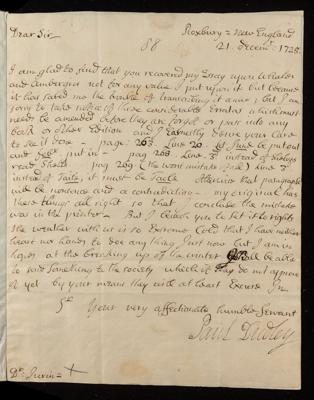 Roxbury = New England
Dear Sir
58
21. Decemr. 1725.
I am glad to find that you recovered my Essay upon Whales
and Ambergris not for any value I put upon it but because
it has saved me the trouble of transcribing it anew; but I am
sorry to take notice of those considerable Errata which must
needs be amended before they are forgot or past into any
book or other Edition and I Earnestly desire your Care
to see it done - page: 263. Line 20. let June be put out
and put in - pag 268. Line 3. instead of
read Sheath pag 269 (the worst mistake of all) Line 5
instead of Tail, it must be Stale Otherwise that paragraph
will be nonsence and a contradiction - my original has
these things all right so that I conclude the mistake
was in the printer - But I beseech you to set it to rights
the weather with us is so Extreme Cold that I have neither
heart nor hands to doe any thing Just now but I am in
hopes at the breaking up of the winter I shall be able
to send something to the society which if they do not approve
of yet by your means they will at least Excuse Im
Sr. Your very affectionate humble Servant
Paul Dudley
Dr. Jurin =